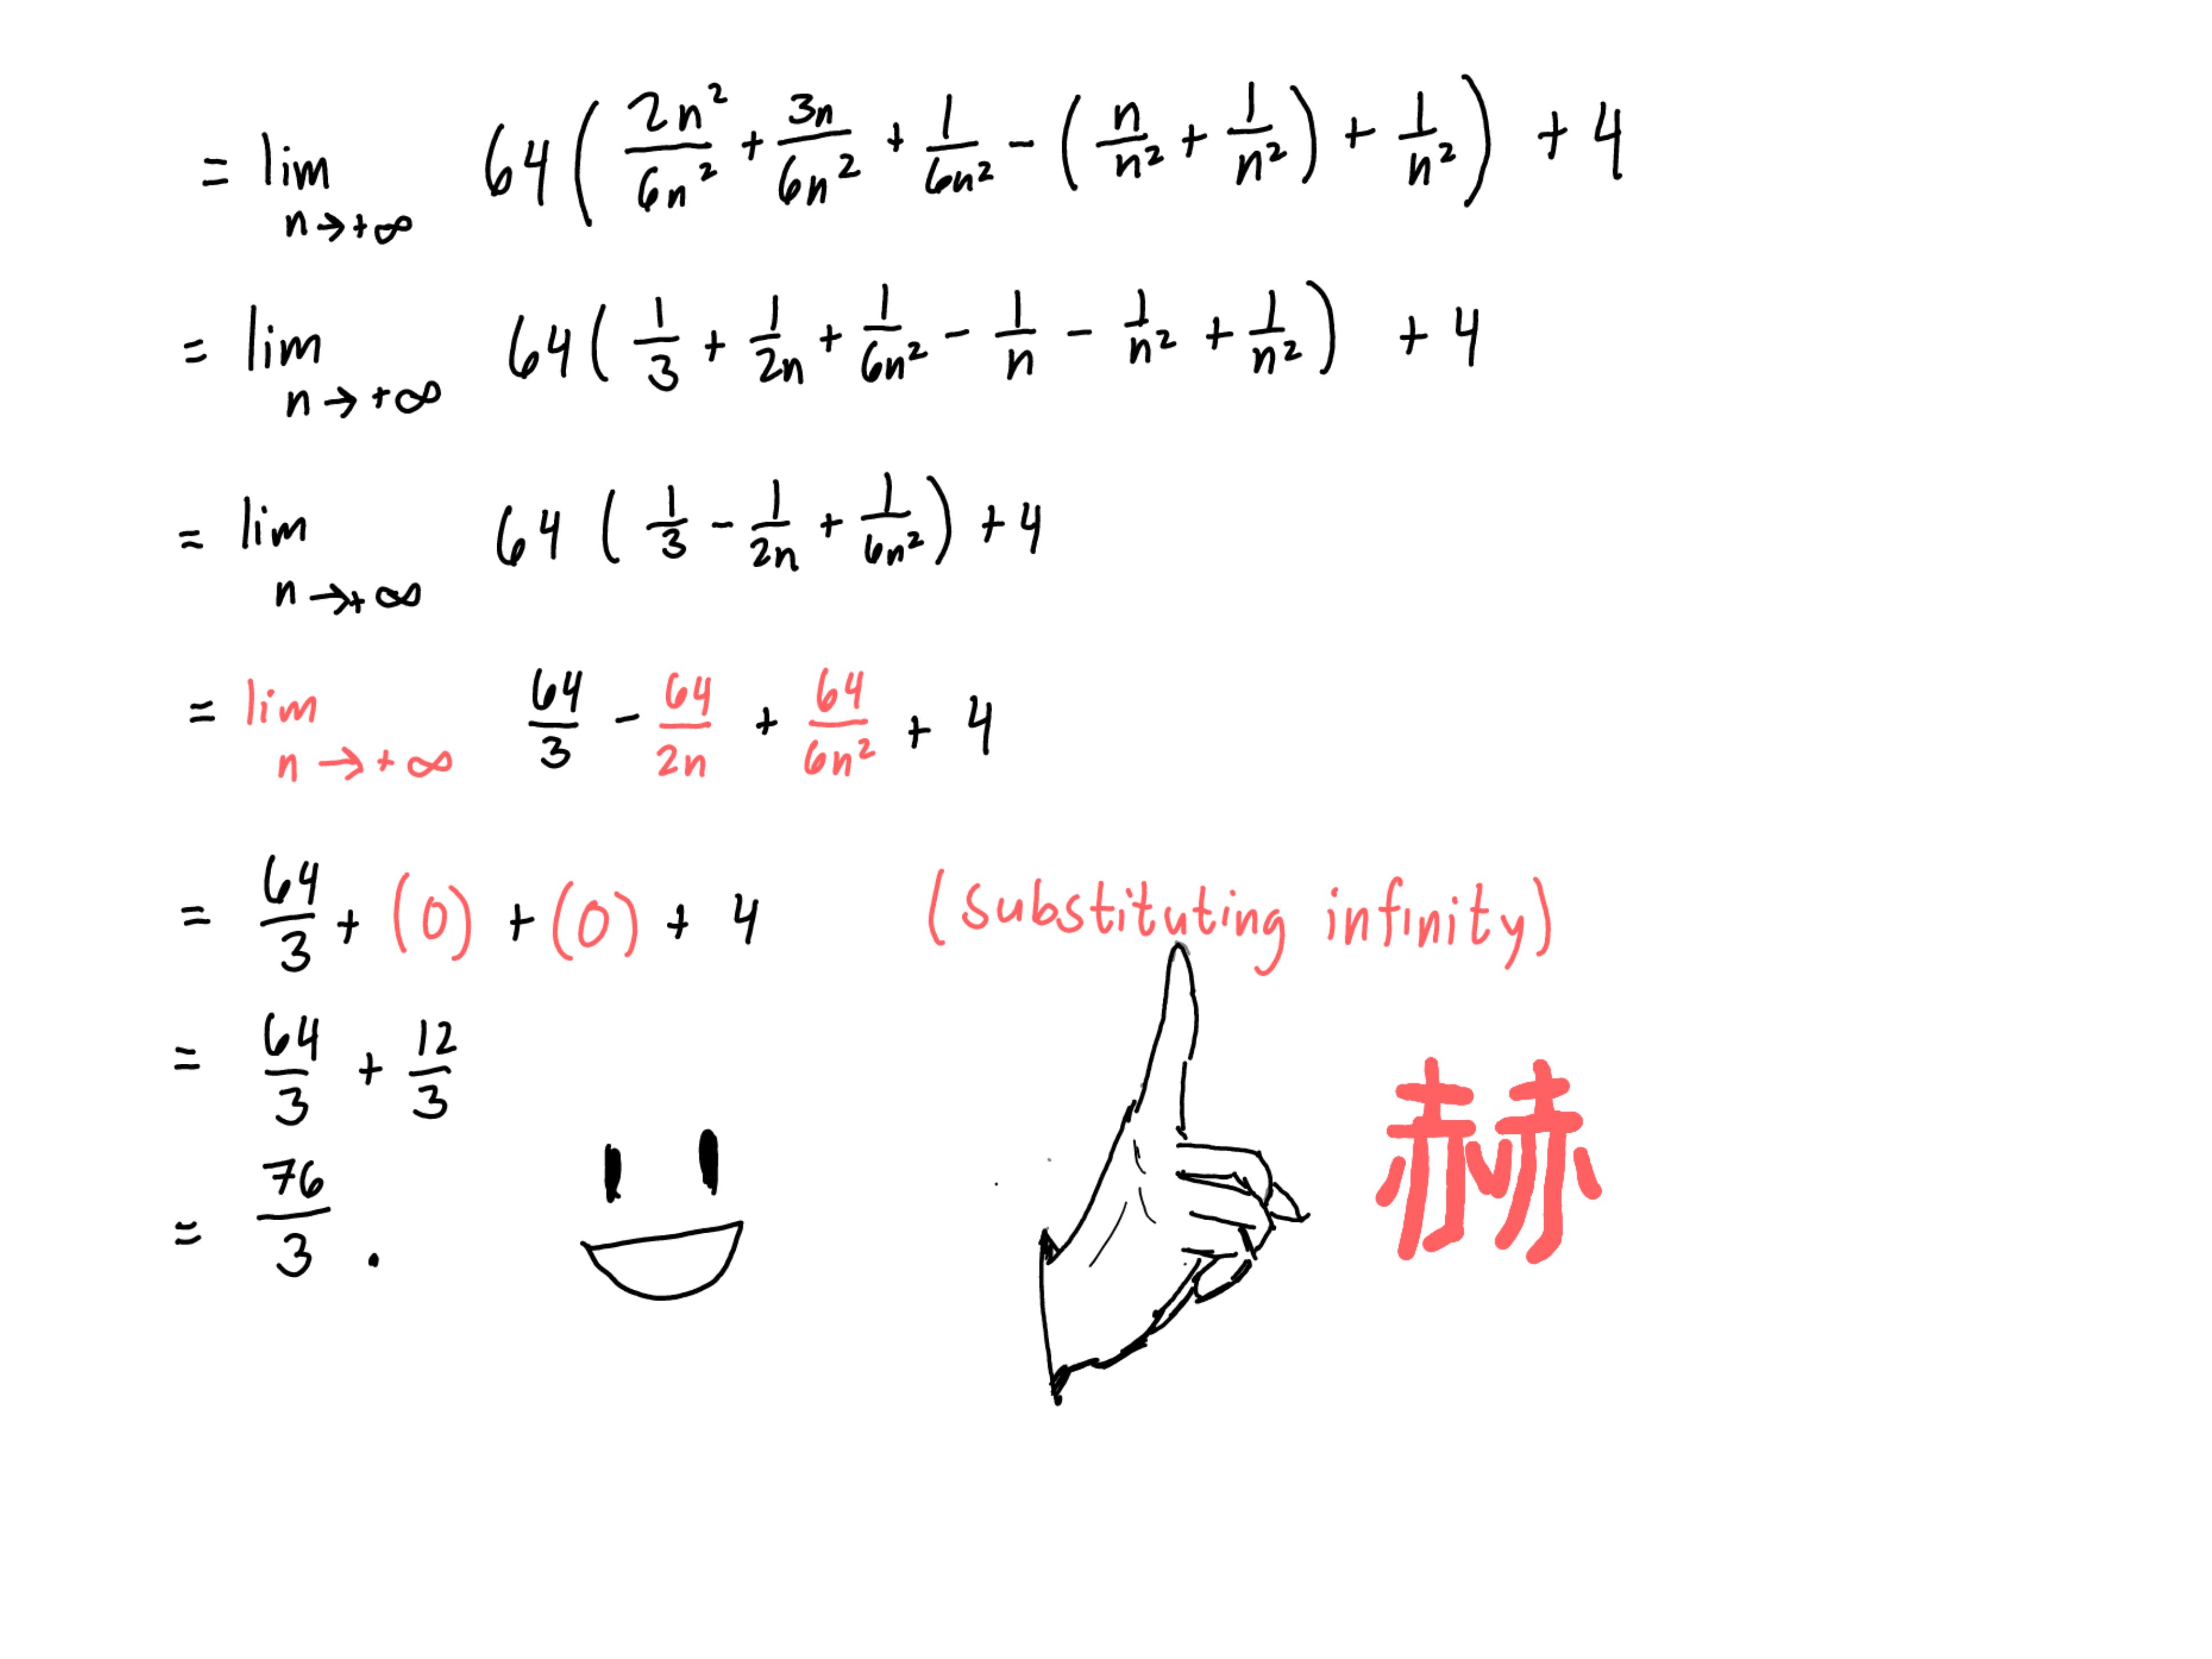 = lim n→+∞ 64(2n²/6n² + 3n/6n² + 1/6n² - (n/n² + 1/n²) + 1/n²) + 4
= lim n→+∞ 64(1/3 + 1/2n + 1/6n² - 1/n - 1/n² + 1/n²) + 4
= lim n→+∞ 64(1/3 - 1/2n + 1/6n²) + 4
= lim n→+∞ 64/3 - 64/2n + 64/6n² + 4
= 64/3 + (0) + (0) + 4 (substituting infinity)
= 64/3 + 12/3
= 76/3.
赫